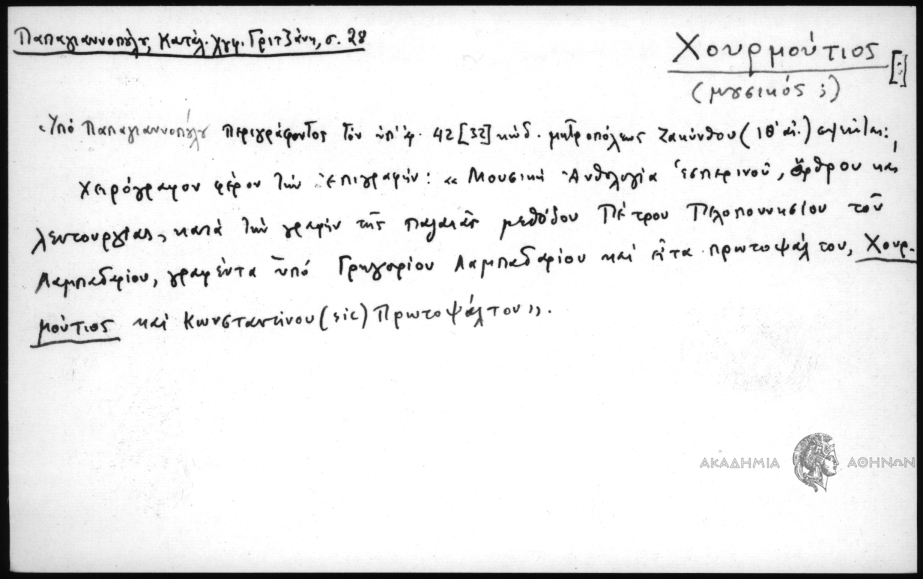 Παπαγιαννοπούλου, Κατάλ. χγφ. Γριτζάνη, σ. 28
Χουρμούτιος [;]
(μουσικός ;)
Ὑπό Παπαγιαννοπούλου περιγράφοντος τόν ὑπ' ἀρ. 42 [33] κώδ. μητροπόλεως Ζακύνθου (ΙΘ' αἰ.) σημειοῦται:
Χειρόγραφον φέρον τήν ἐπιγραφήν: «Μουσική Ἀνθολογία Ἑσπερινοῦ, ὄρθρου καί
λειτουργίας, κατά τήν γραφήν τῆς παλαιᾶς μεθόδου Πέτρου Πελοποννησίου τοῦ
Λαμπαδαρίου, γραφέντα ὑπό Γρηγορίου Λαμπαδαρίου καί εἶτα πρωτοψάλτου, Χουρ-
μούτιος καί Κωνσταντίνου (sic) Πρωτοψάλτου».
ΑΚΑΔΗΜΙΑ ΑΘΗΝΩΝ